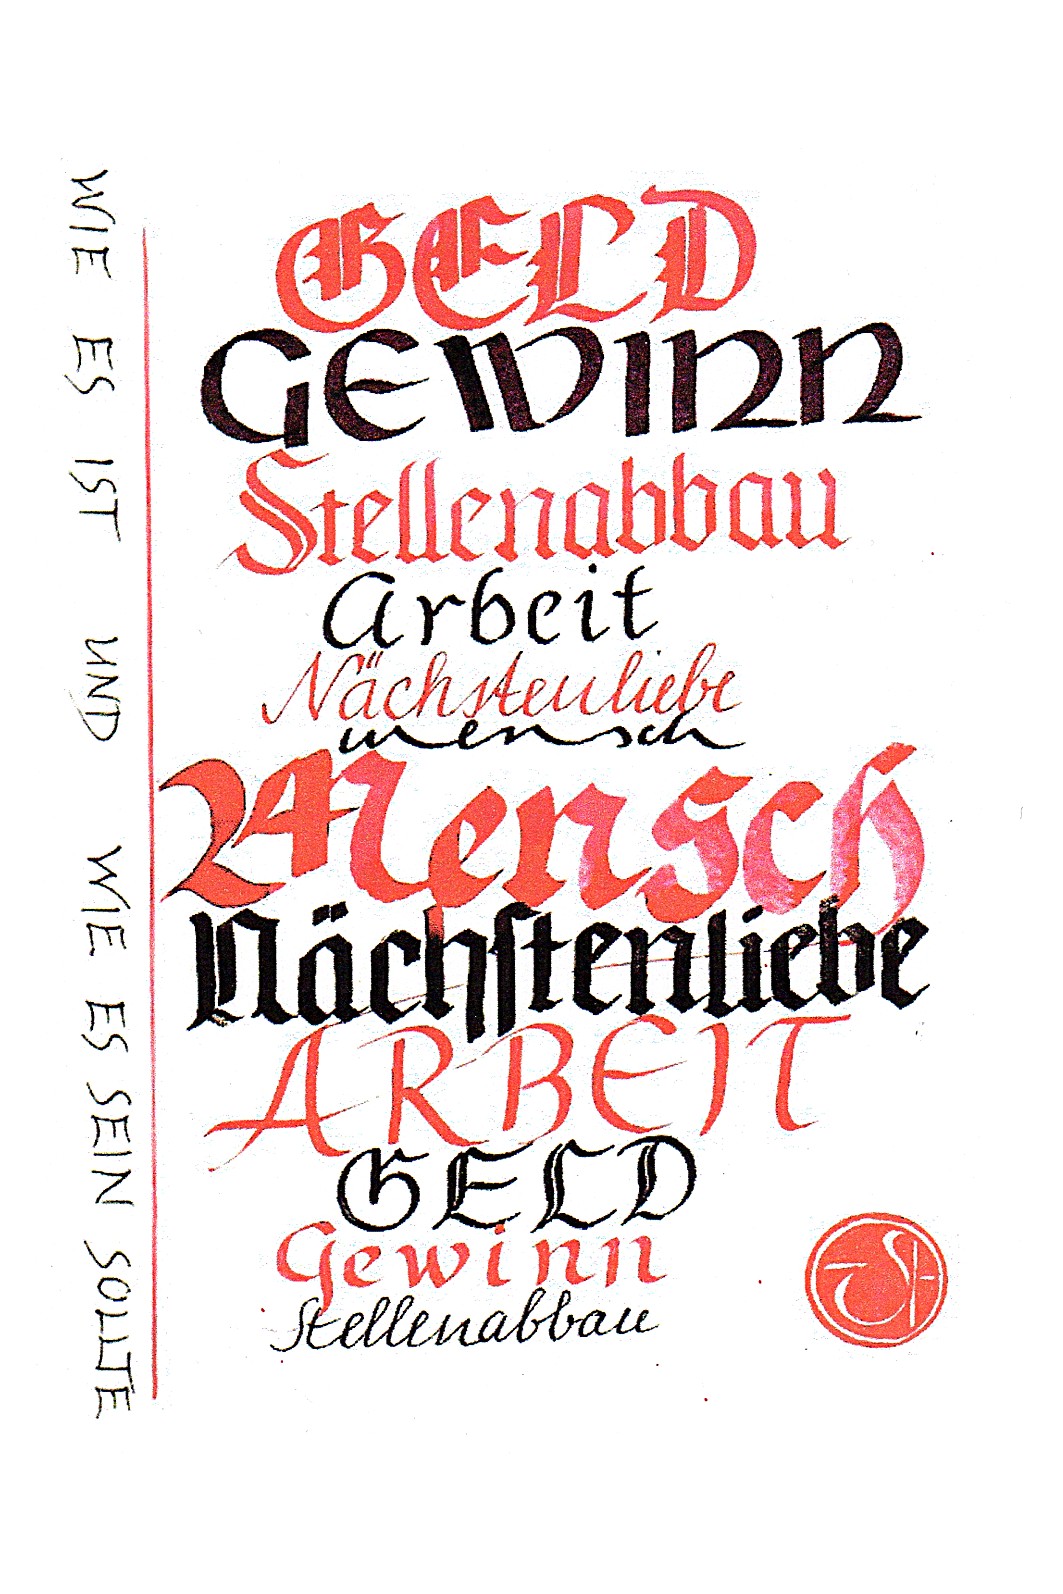 WIE ES IST UND WIE ES SEIN SOLLTE
GELD
GEWINN
Stellenabbau
Arbeit
Nächstenliebe
mensch
Mensch
Nächstenliebe
ARBEIT
GELD
Gewinn
Stellenabbau